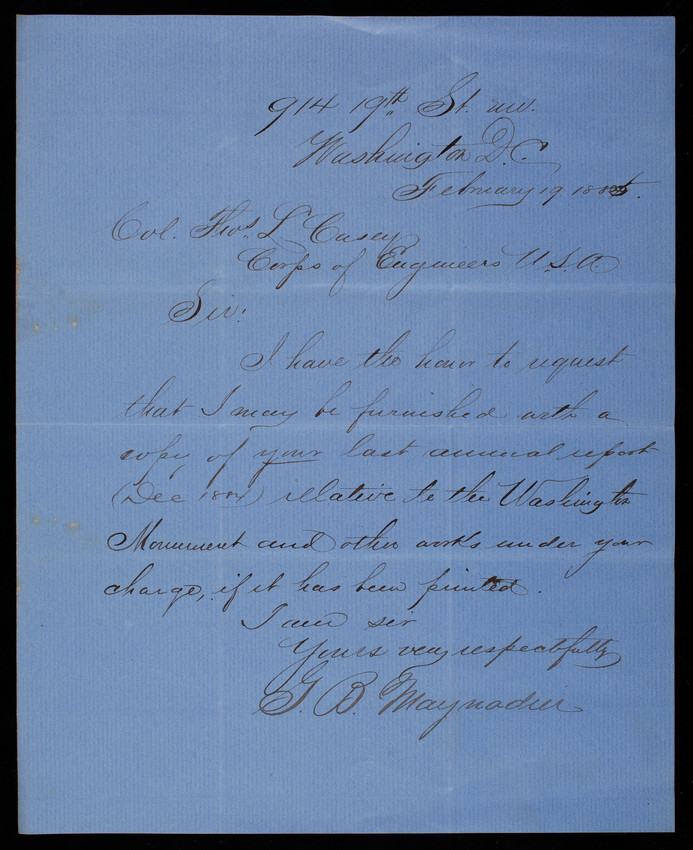 914 19th St. nw.
Washington D.C.
February 19 1885.
Col. Thos. L Casey
Corps of Engineers U.S.A.
Sir:
I have the honor to request
that I may be furnished with a
copy of your last annual report
(Dec 1884) relative to the Washington
Monument and other works under your
charge, if it has been printed.
I am sir
Yours very respectfully
G. B. Maynadier